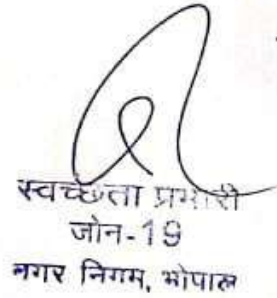 स्वच्छता प्रभारी
जोन-19
नगर निगम, भोपाल